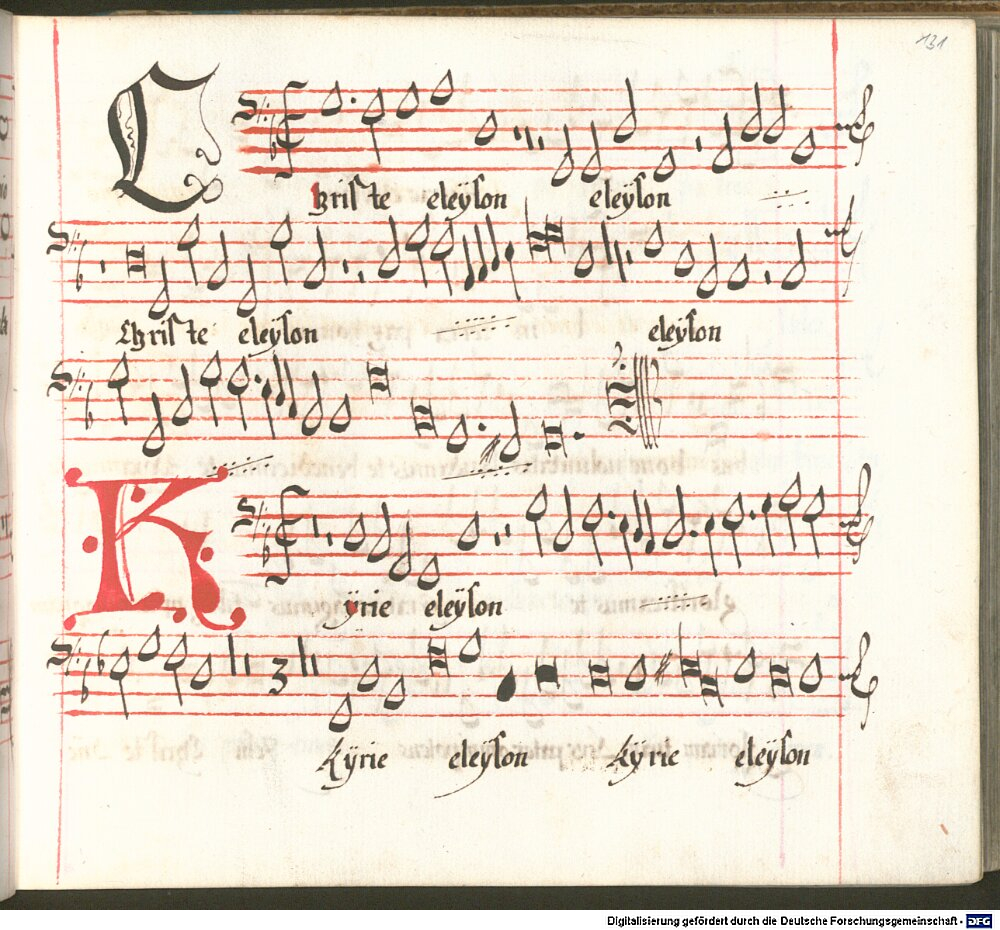 131
Christe eleÿson eleÿson
Christe eleÿson eleÿson
Kÿrie eleÿson
3
kÿrie eleÿson kÿrie eleÿson
Digitalisierung gefördert durch die Deutsche Forschungsgemeinschaft - DFG